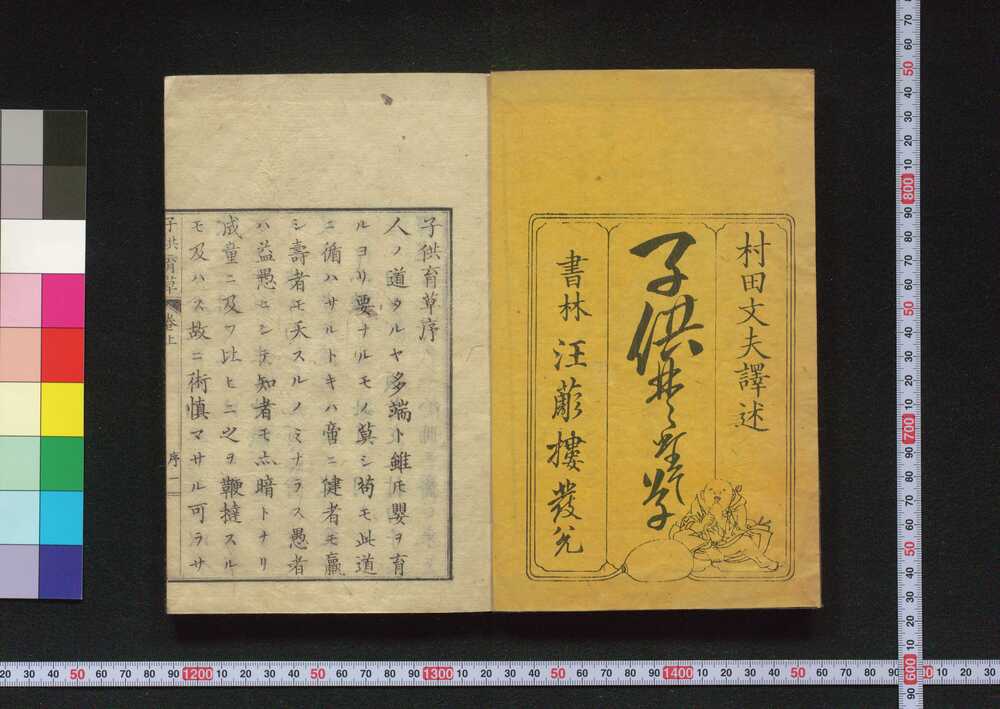 村田文夫譯述
子供そだて草
書林 汪蔴樓發兌
子供育草序
人ノ道タルヤ多端ト雖𪜈嬰ヲ育
ルヨリ要ナルモノ莫シ苟モ此道
ニ循ハサルトキハ啻ニ健者モ羸
シ壽者モ夭スルノミナラス愚者
ハ益愚ニシテ知者モ亦暗トナリ
成童ニ及フ比ヒニ之ヲ鞭撻スル
モ及ハス故ニ術慎マサル可ラサ
子供育草 卷上 序一
10 20 30 40 50 60 70 80 90 1200 10 20 30 40 50 60 70 80 90 1300 10 20 30 40 50 60 70 80 90 1400 10 20 30 40 50 60 70 80 90
70 60 50 40 30 20 10 800 90 80 70 60 50 40 30 20 10 700 90 80 70 60 50 40 30 20 10 600 90